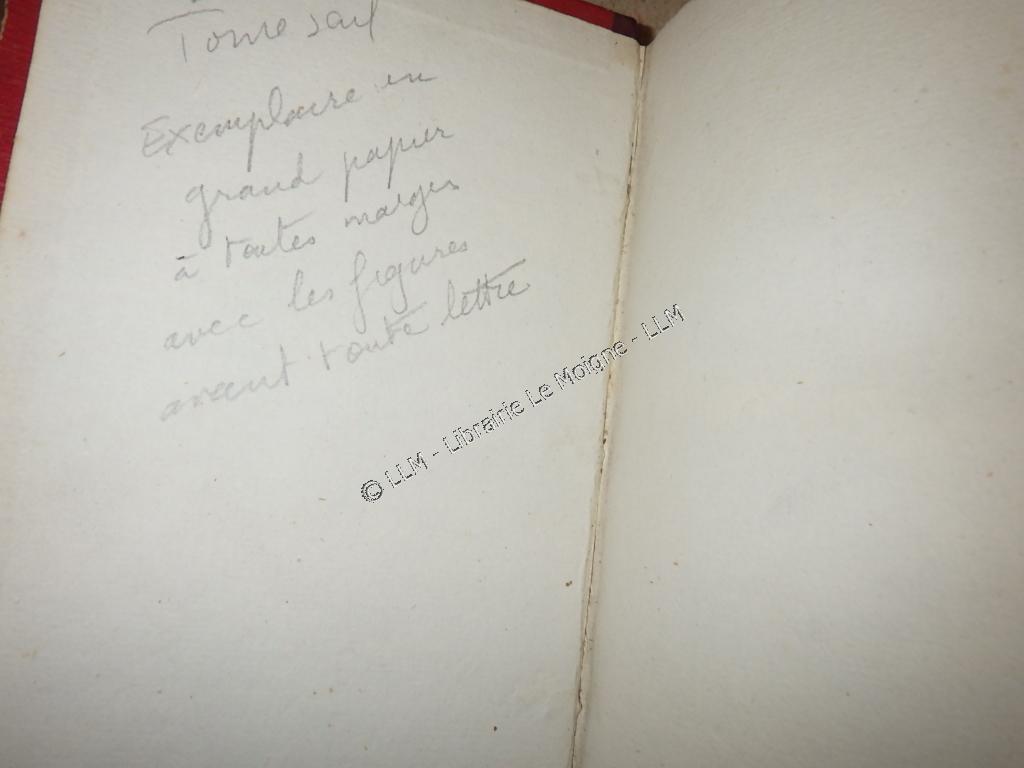 Tome seul
Exemplaire en
grand papier
à toutes marges
avec les figures
avant toute lettre
© LLM - Librairie Le Moigne - LLM